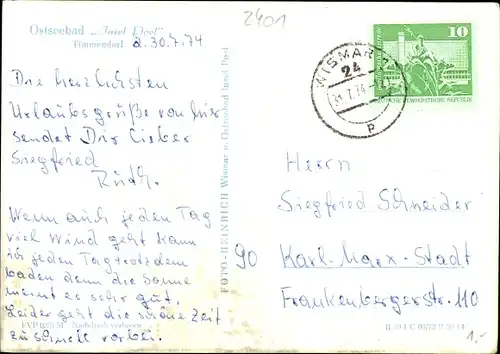 2401
Ostseebad „Insel Poel"
Timmendorf d. 30.7.74
Die herzlichsten
Urlaubsgrüße von hier
sendet Dir lieber
Siegfried
Ruth.
Wenn auch jeden Tag
viel Wind geht kann
ich jeden Tag trotzdem
baden denn die Sonne
meint es sehr gut.
Leider geht die schöne Zeit
zu schnell vorbei.
EVP Nachdruck verboten
FOTO-HEINRICH Wismar u. Ostseebad Insel Poel
10
DEUTSCHE DEMOKRATISCHE REPUBLIK
WISMAR
24
31.7.74
p
Herrn
Siegfried Schneider
90 Karl-Marx-Stadt
Frankenbergerstr. 110
1.-